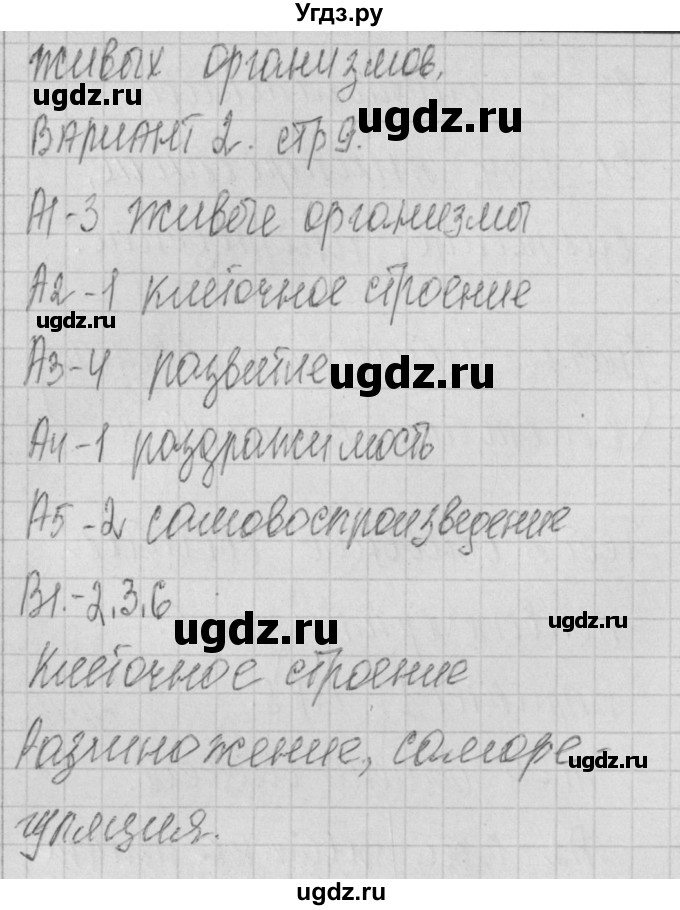 Угдз.ру
живых организмов.
ugdz.ru
ugdz.ru
ВАРИАНТ 2. стр 9.
А1-3 живые организмы
А2-1 клеточное строение
ugdz.ru
А3-4 развитие
ugdz.ru
А4-1 раздражимость
А5-2 самовоспроизведение
В1.-2,3,6
ugdz.ru
ugdz.ru
Клеточное строение
Размножение, саморе-
ugdz.ru
гуляция.
ugdz.ru